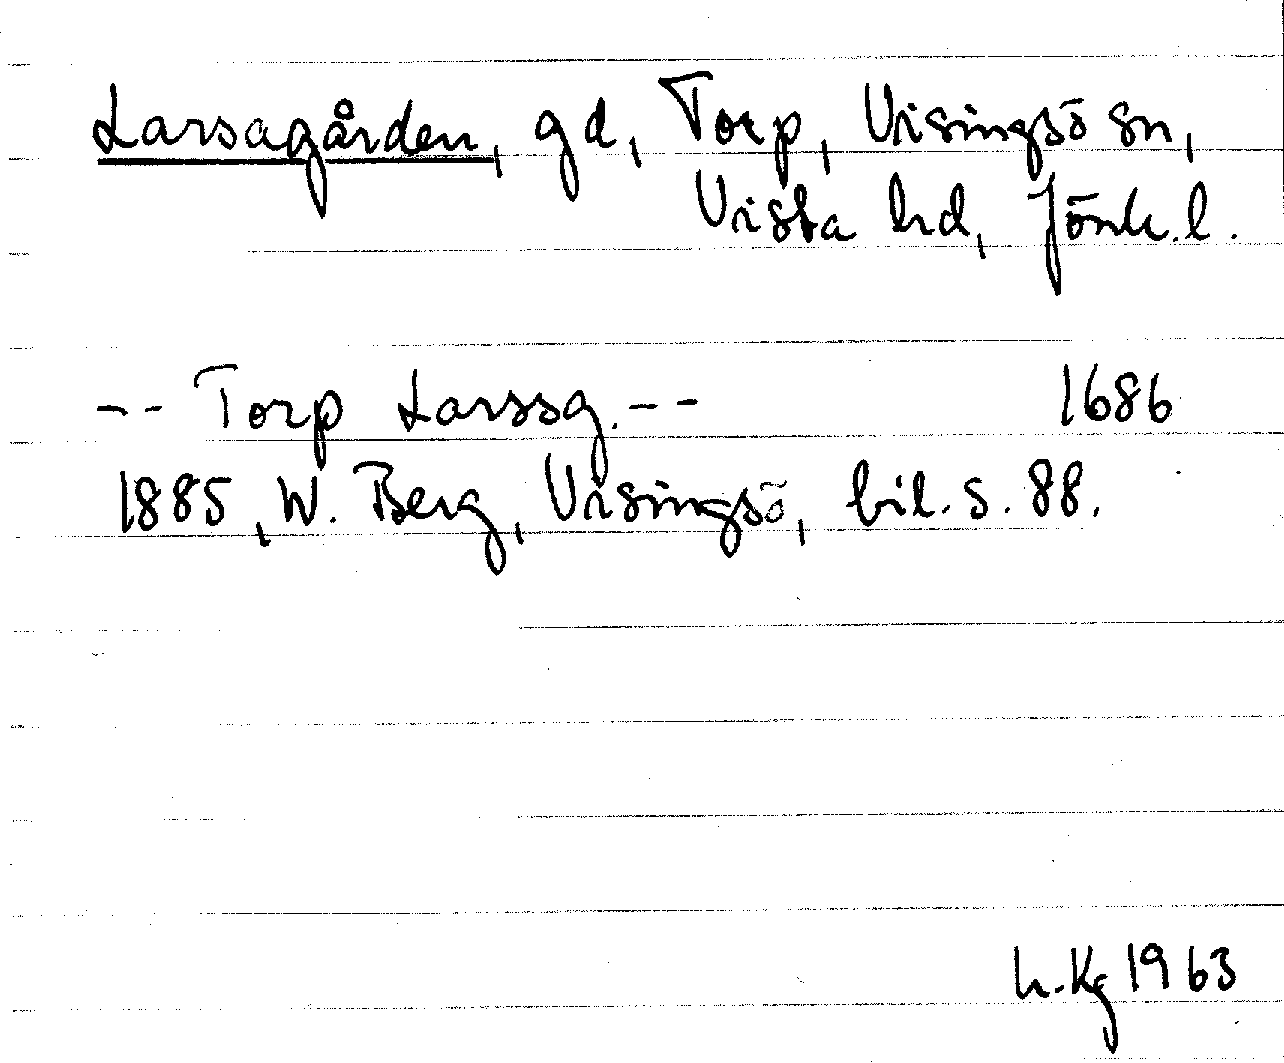 Larsagården, gd, Torp, Visingsö sn,
Vista hd, Jönk. l.
-- Torp Larssg. -- 1686
1885, W. Berg, Visingsö, bil. s. 88.
h. Kg 1963